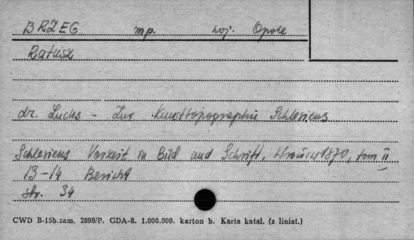 BRZEG mp. woj. Opole
Ratusz
dr. Luchs - Zur Kunsttopographie Schlesiens
Schlesiens Vorzeit in Bild und Schrift, 1870, tom II
13-14 Bericht
str. 34
CWD B-15b. zam. 2899/P. GDA-8. 1.000.000. karton b. Karta katal. (z liniat.)